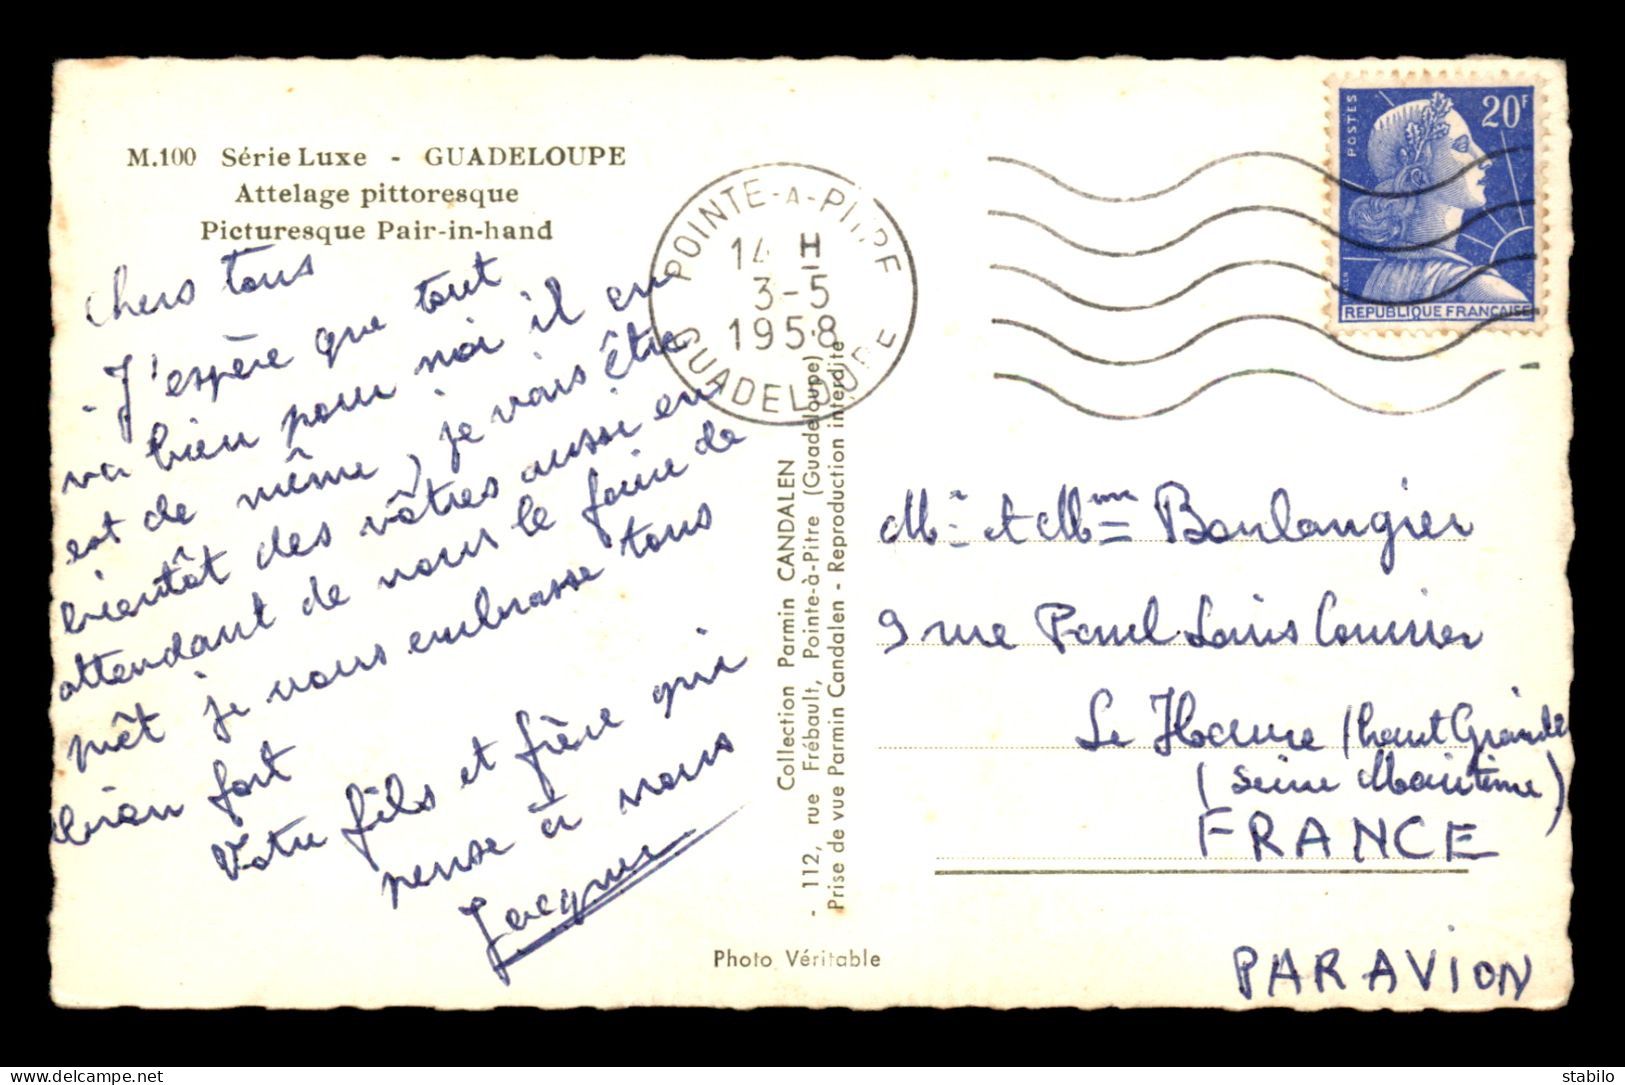 M.100 Série Luxe - GUADELOUPE
Attelage pittoresque
Picturesque Pair-in-hand
chers tous
- J'espère que tout
va bien pour moi il en
est de même, je vais être
bientôt des vôtres aussi en
attendant de vous le faire de
prêt je vous embrasse tous
bien fort
Votre fils et frère qui
pense à vous
Jacques
POINTE-A-PITRE
14 H
3-5
1958
GUADELOUPE
Collection Parmin CANDALEN
- 112, rue Frébault, Pointe-à-Pitre (Guadeloupe)
Prise de vue Parmin Candalen - Reproduction interdite
Photo Véritable
POSTES
20F
REPUBLIQUE FRANÇAISE
Mr et Mme Boulangier
9 rue Paul Louis Courrier
Le Havre (haut Graville
(Seine Maritime)
FRANCE
PAR AVION
stabilo